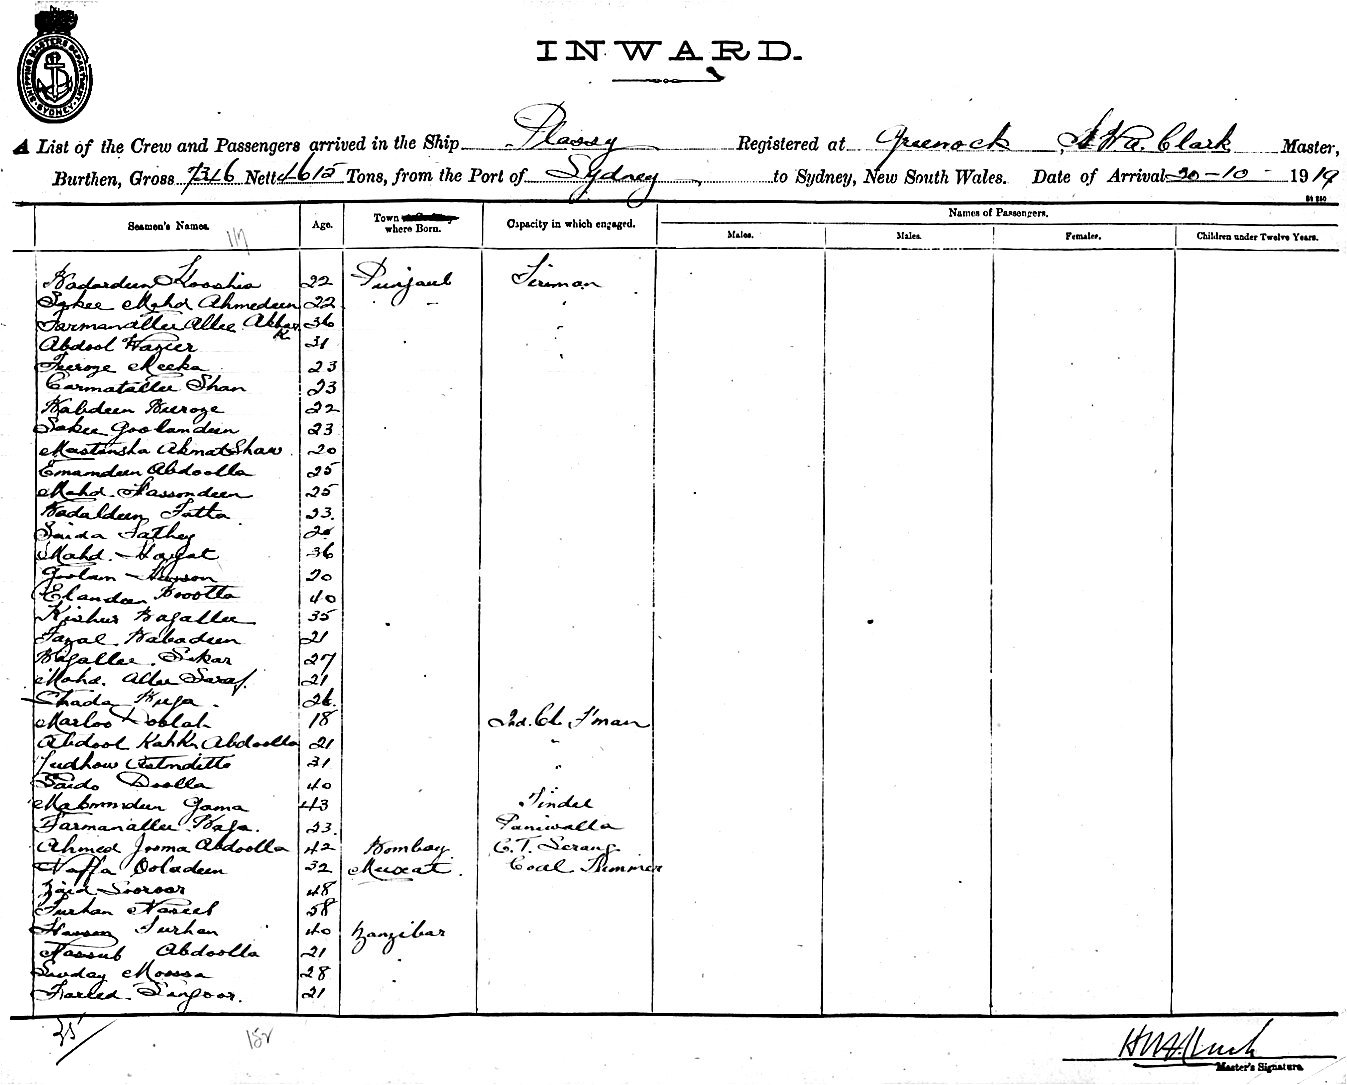 SHIPPING MASTERS DEPARTMENT SYDNEY
INWARD.
A List of the Crew and Passengers arrived in the Ship Plassy Registered at Greenock Clark Master,
Burthen, Gross 7346 Nett 4615 Tons, from the Port of Sydney to Sydney, New South Wales. Date of Arrival 20-10- 1919
Seamen's Names. Age. Town where Born. Capacity in which engaged. Names of Passengers.
Males. Males. Females. Children under Twelve Years.
Badardeen Kooshia 22 Punjaub Fireman
Sakee Mahd Ahmedeen 22 " "
Farmanallee Allee Akbar K. 36 "
Abdool Wazeer 31 "
Feeroze Meeka 23
Carmatallee Shan 23
Babdeen Beeroze 22
Sakee Goolamdeen 23
Mastansha Ahmat Shaw 20
Emamdeen Abdoolla 25
Mahd. Hassondeen 25
Badaldeen Fatta 23.
Saida Fathey
Mahd. Hayat 36
Goolam Hassan 20
Elandeen Bootta 40
Kishur Bagallee 35
Fazal Babadeen 21
Bagallee Sekar 27
Mahd. Allee Saraf. 21
Shada Buga. 26.
Marloo Doolah 18 Ind. Cl. F'man
Abdool Kahkn Abdoolla 21 "
Judhow 31 "
Saido Doolla 40
Mabommdeen Gama 43 Tindel
Farmanallee Baga. 23. Paniwalla
Ahmed Jooma Abdoolla 42 Bombay C.T. Serang
Naffa Ooladeen 32 Muscat. Coal Trimmer
Zaid Sooroor 48
Furhan Naseeb 58
Hassan Furhan 40 Zanzibar
Nassub Abdoolla 21
Sunday Moossa 28
Fareed Sangoor. 21
35
152
Master's Signature.